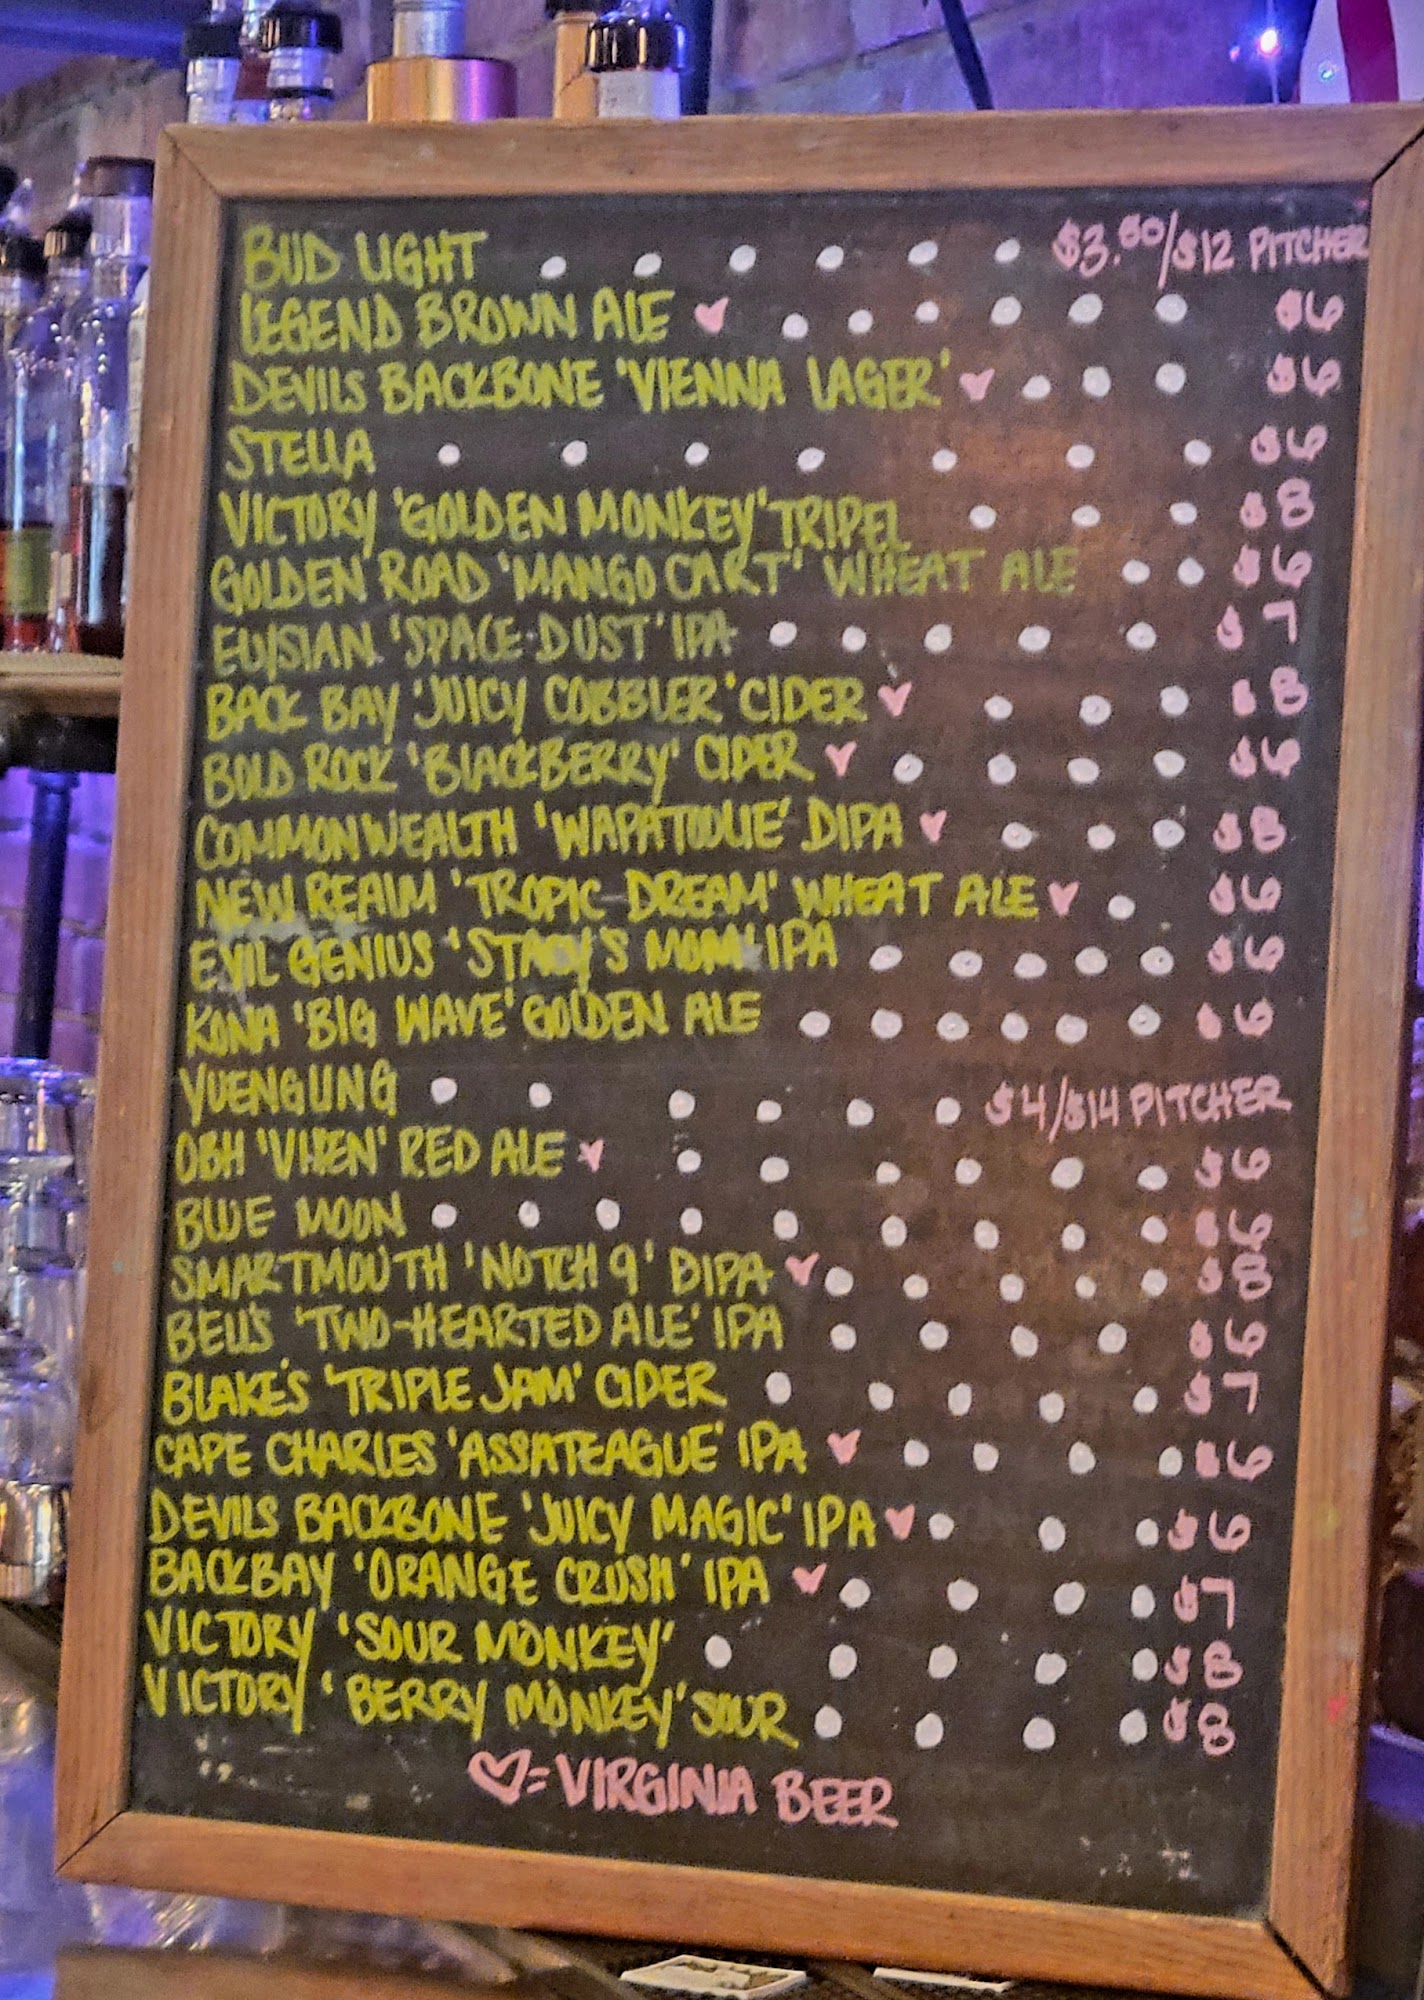 BUD LIGHT $3.50/$12 PITCHER
LEGEND BROWN ALE ♥ $6
DEVILS BACKBONE 'VIENNA LAGER' ♥ $6
STELLA $6
VICTORY 'GOLDEN MONKEY' TRIPEL $8
GOLDEN ROAD 'MANGO CART' WHEAT ALE $6
ELYSIAN 'SPACE DUST' IPA $7
BACK BAY 'JUICY COBBLER' CIDER ♥ $8
BOLD ROCK 'BLACKBERRY' CIDER ♥ $6
COMMONWEALTH 'WAPATOOLIE' DIPA ♥ $8
NEW REALM 'TROPIC DREAM' WHEAT ALE ♥ $6
EVIL GENIUS 'STACY'S MOM' IPA $6
KONA 'BIG WAVE' GOLDEN ALE $6
YUENGLING $4/$14 PITCHER
OBH 'VIXEN' RED ALE ♥ $6
BLUE MOON $6
SMARTMOUTH 'NOTCH 9' DIPA ♥ $8
BELL'S 'TWO-HEARTED ALE' IPA $6
BLAKE'S 'TRIPLE JAM' CIDER $7
CAPE CHARLES 'ASSATEAGUE' IPA ♥ $6
DEVILS BACKBONE 'JUICY MAGIC' IPA ♥ $6
BACKBAY 'ORANGE CRUSH' IPA ♥ $7
VICTORY 'SOUR MONKEY' $8
VICTORY 'BERRY MONKEY' SOUR $8
♥ = VIRGINIA BEER